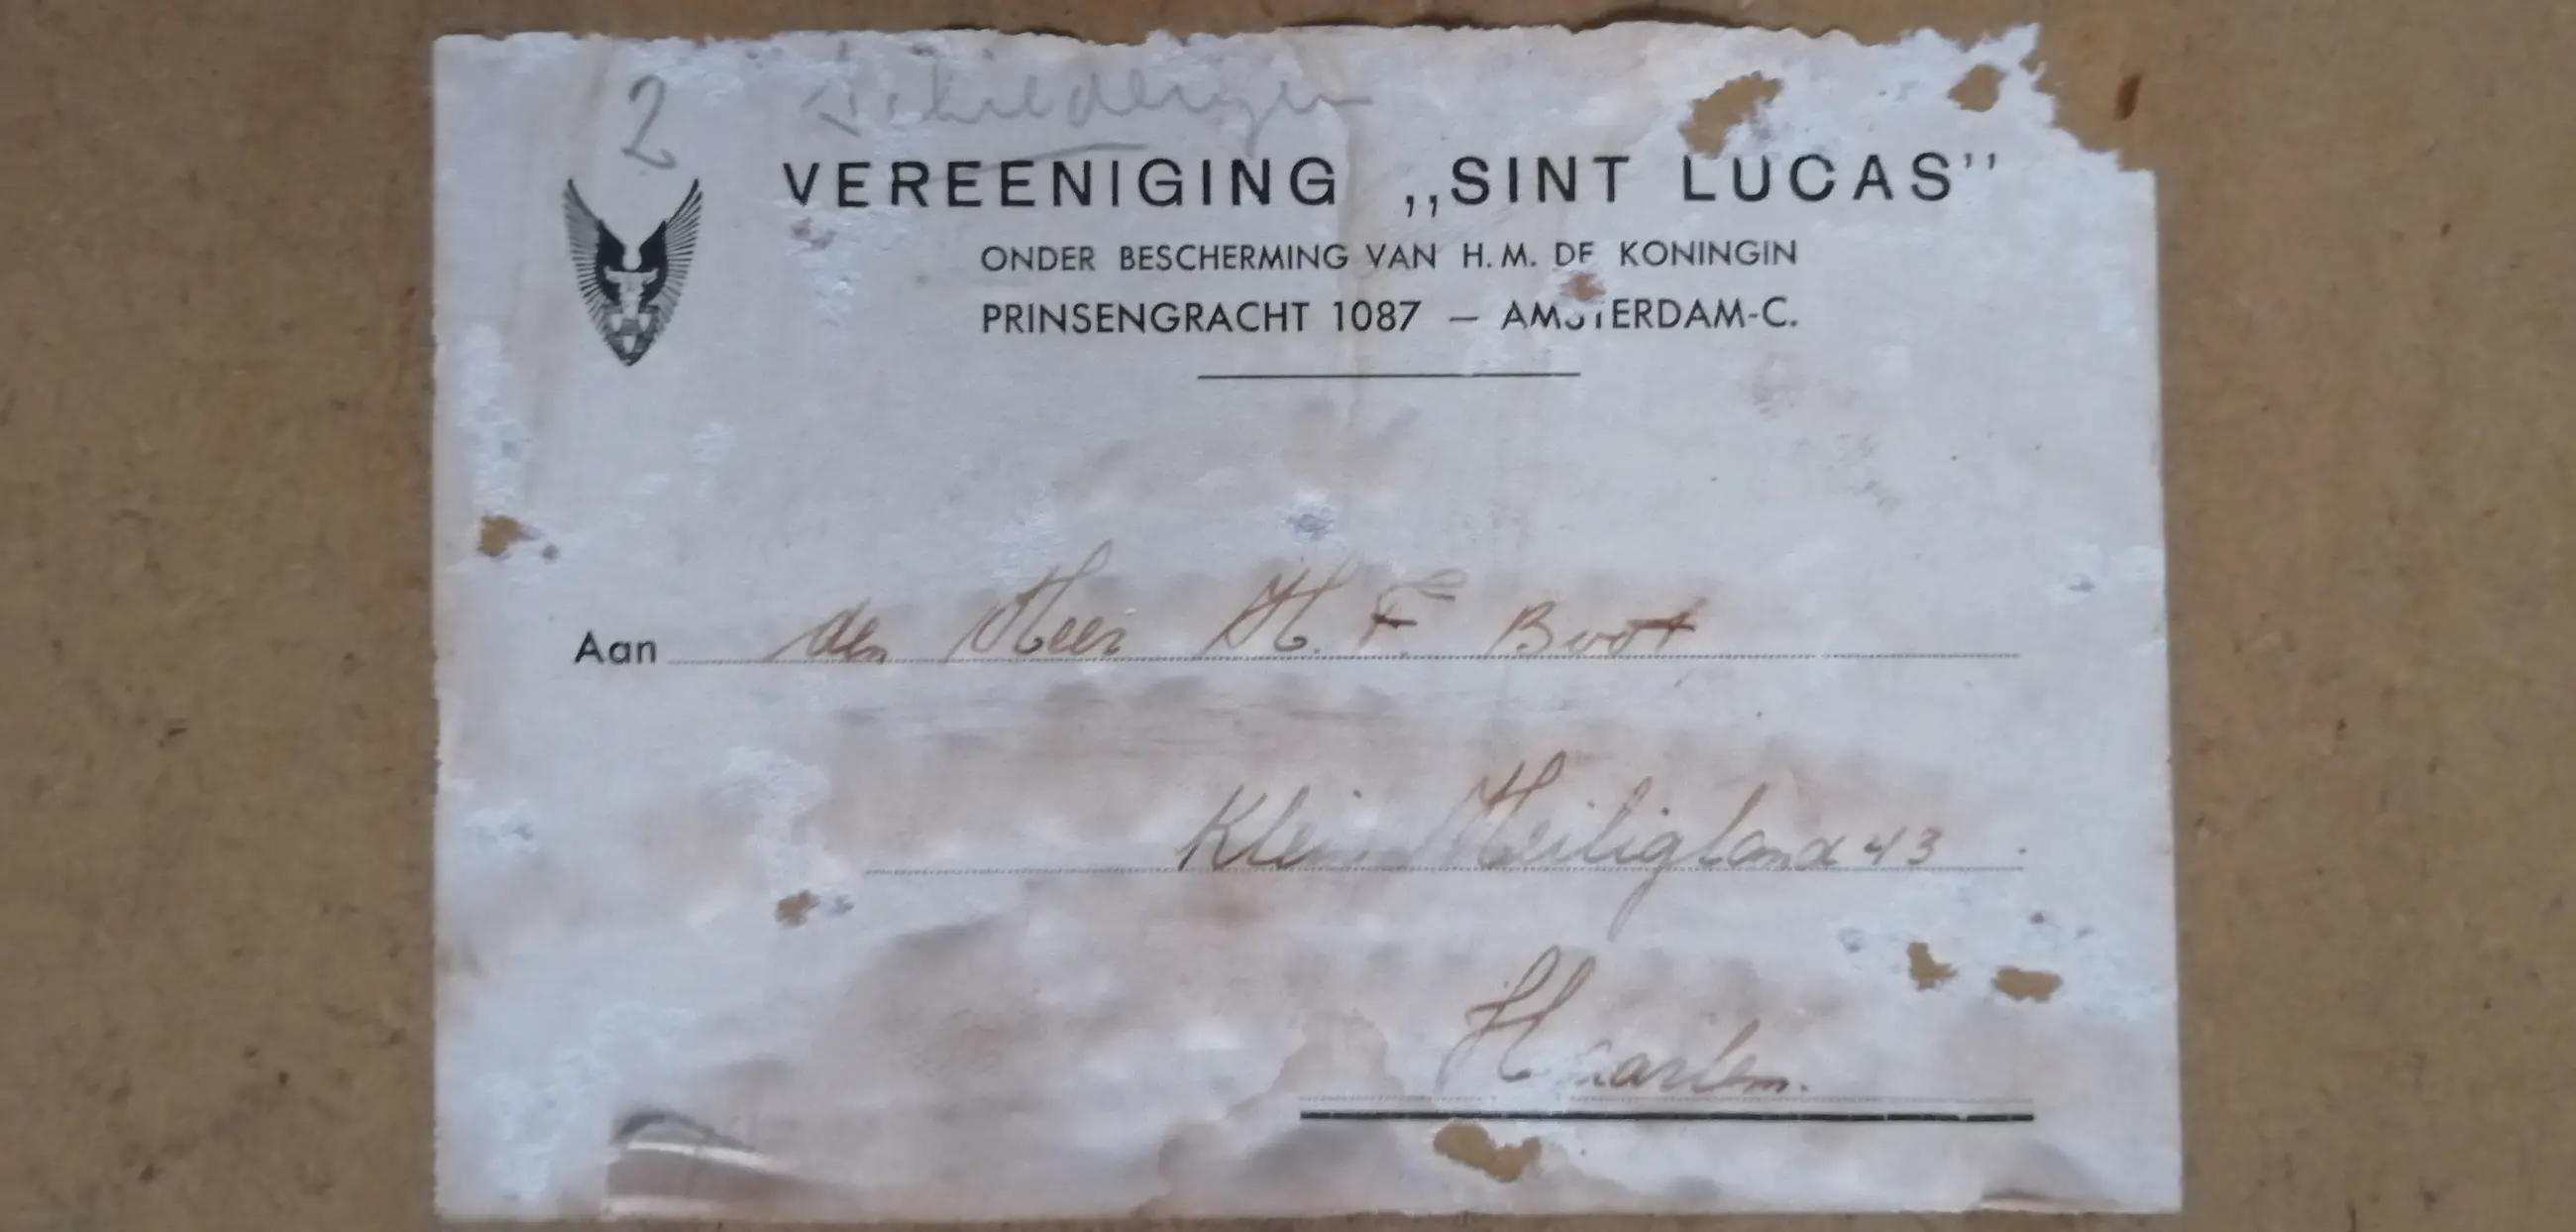 2 Schilderijen
VEREENIGING ,,SINT LUCAS''
ONDER BESCHERMING VAN H. M. DE KONINGIN
PRINSENGRACHT 1087 — AMSTERDAM-C.
Aan den Heer H. F. Boot
Klein Heiligland 43
Haarlem.